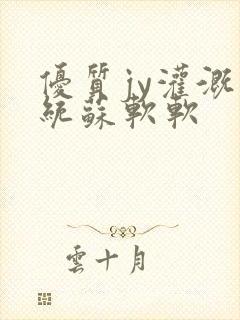 優質jy灌溉
統蘇軟軟
雲十月